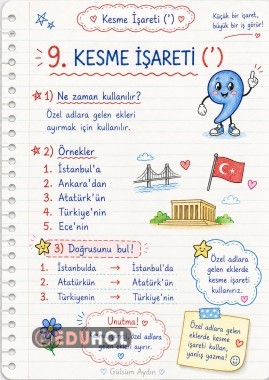 Kesme İşareti (')
Küçük bir işaret,
büyük bir iş görür!
9. KESME İŞARETİ (')
1) Ne zaman kullanılır?
Özel adlara gelen ekleri
ayırmak için kullanılır.
2) Örnekler
1. İstanbul'a
2. Ankara'dan
3. Atatürk'ün
4. Türkiye'nin
5. Ece'nin
3) Doğrusunu bul!
1. İstanbulda → İstanbul'da
2. Atatürkün → Atatürk'ün
3. Türkiyenin → Türkiye'nin
Özel adlara
gelen eklerde
kesme işareti
kullanırız.
Unutma!
özel adlara
gelen ekleri ayırır.
Özel adlara gelen
eklerde kesme
işareti kullan,
yanlış yazma!
EDUHOL
Gülsüm Aydın